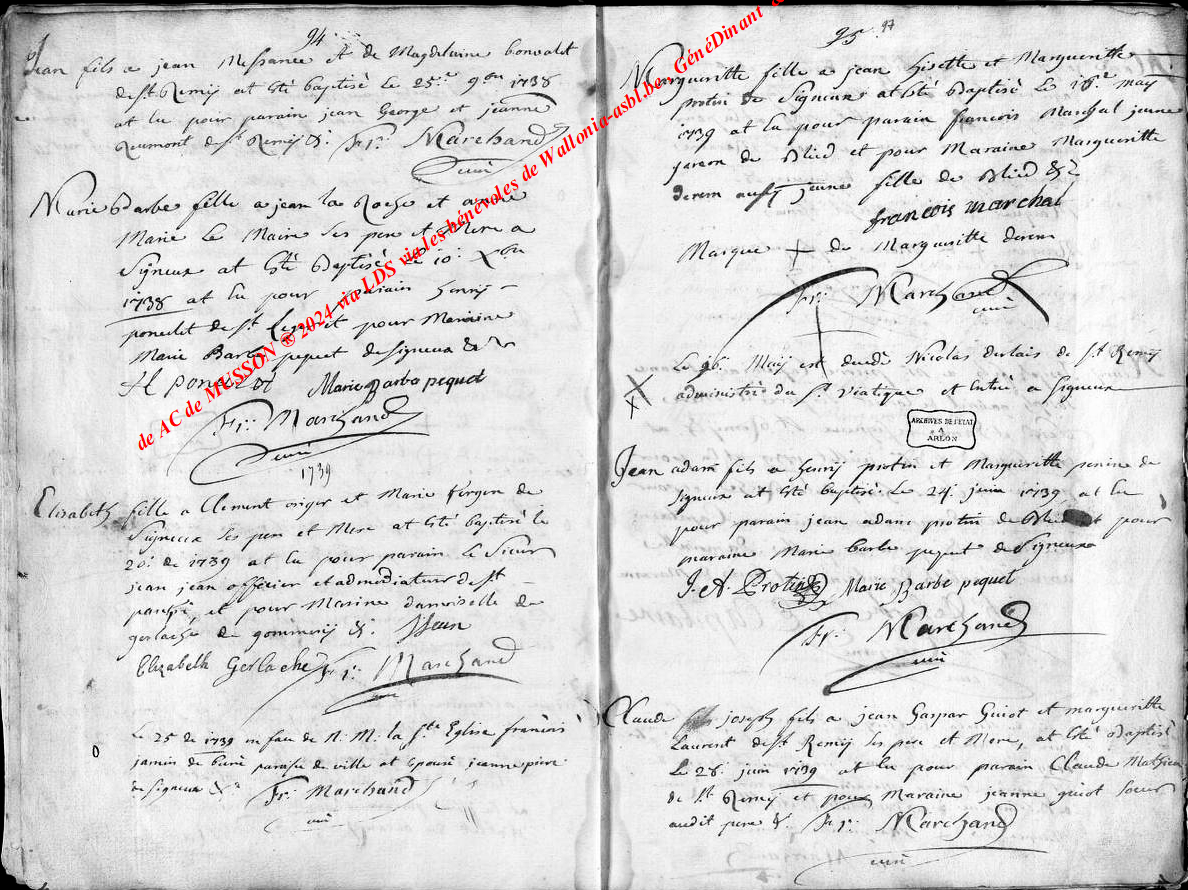 94
Jean fils a jean Messance et de Magdelaine bonvalet
de St Remij at esté baptisé le 25.e 9bre 1738
at eu pour parain jean George et jeanne
Reumont de St Remij &. Fr: Marchand
curé
Marie Barbe fille a jean la Roche et anne
Marie le Maire ses pere et Mere a
Signeux at esté Baptisée le 10: Xbre
1738 at eu pour parain henrij
poncelet de St Leger et pour Maraine
Marie Barbe pequet de signeux &
H poncelet Marie Barbe pequet
Fr: Marchand
curé
1739
Elizabeth fille a Clement origer et Marie
Signeux ses pere et Mere at esté baptisée le
20: de 1739 at eu pour parain le Sieur
jean jean officier et admodiateur de St
et pour Marine damoiselle de
gerlache de gommerij &. JJean
Elizabeth Gerlache Fr: Marchand
curé
Le 25 de 1739 en face de N. M. la Ste Eglise francois
jamin de paroise de ville at epousé jeanne
de signeux & Fr: Marchand
curé
95 97
Margueritte fille a jean Gisette et Margueritte
protin de Signeux at esté Baptisé le 16.e may
1739 at eu pour parain francois Marchal jeune
garcon de Blied et pour Maraine Margueritte
derem aussy jeune fille de Blied &
francois marchal
Marque + de Margueritte derem
Fr: Marchand
curé
Le 26. Maij est decedé Nicolas de St Remij
administré du St Viatique et Entéré a Signeux
ARCHIVES DE L'ETAT
A
ARLON
Jean adam fils a henrij protin et Margueritte de
Signeux at esté baptisé. Le 24: juin 1739 at eu
pour parain jean adam protin de et pour
maraine Marie barbe pequet de Signeux
J. A. Protin Marie Barbe pequet
Fr: Marchand
curé
Claude joseph fils a jean Gaspar Guiot et margueritte
Laurent de St Remij ses pere et Mere, at esté Baptisé
Le 28: juin 1739 at eu pour parain Claude Mathieu
de St Remij et pour Maraine jeanne guiot soeur
audit pere &. Fr: Marchand
curé
de AC de MUSSON ® 2024 via LDS via les bénévoles de Wallonia-asbl.be - GénéDinant